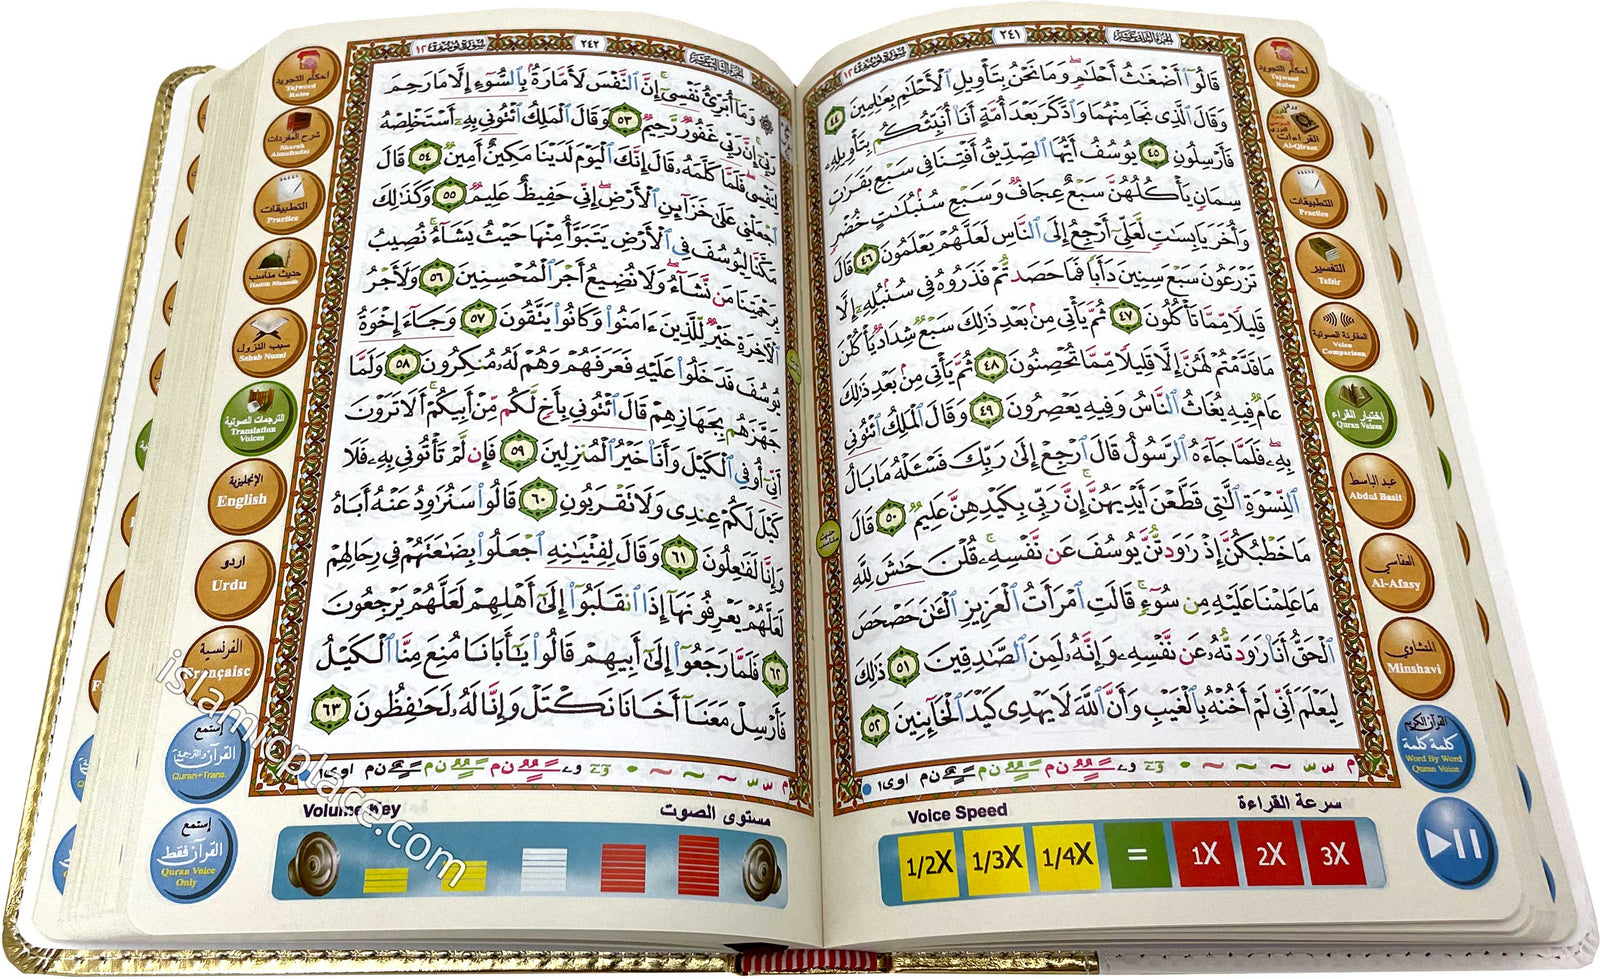 سورة يوسف ١٢
٢٤١
الجزء الثاني عشر
قَالُوٓا۟ أَضْغَـٰثُ أَحْلَـٰمٍ ۖ وَمَا نَحْنُ بِتَأْوِيلِ ٱلْأَحْلَـٰمِ بِعَـٰلِمِينَ ٤٤
وَقَالَ ٱلَّذِى نَجَا مِنْهُمَا وَٱدَّكَرَ بَعْدَ أُمَّةٍ أَنَا۠ أُنَبِّئُكُم بِتَأْوِيلِهِۦ
فَأَرْسِلُونِ ٤٥ يُوسُفُ أَيُّهَا ٱلصِّدِّيقُ أَفْتِنَا فِى سَبْعِ بَقَرَٰتٍ
سِمَانٍ يَأْكُلُهُنَّ سَبْعٌ عِجَافٌ وَسَبْعِ سُنۢبُلَـٰتٍ خُضْرٍ
وَأُخَرَ يَابِسَـٰتٍ لَّعَلِّىٓ أَرْجِعُ إِلَى ٱلنَّاسِ لَعَلَّهُمْ يَعْلَمُونَ ٤٦ قَالَ
تَزْرَعُونَ سَبْعَ سِنِينَ دَأَبًا فَمَا حَصَدتُّمْ فَذَرُوهُ فِى سُنۢبُلِهِۦٓ إِلَّا
قَلِيلًا مِّمَّا تَأْكُلُونَ ٤٧ ثُمَّ يَأْتِى مِنۢ بَعْدِ ذَٰلِكَ سَبْعٌ شِدَادٌ يَأْكُلْنَ
مَا قَدَّمْتُمْ لَهُنَّ إِلَّا قَلِيلًا مِّمَّا تُحْصِنُونَ ٤٨ ثُمَّ يَأْتِى مِنۢ بَعْدِ ذَٰلِكَ
عَامٌ فِيهِ يُغَاثُ ٱلنَّاسُ وَفِيهِ يَعْصِرُونَ ٤٩ وَقَالَ ٱلْمَلِكُ ٱئْتُونِى
بِهِۦ ۖ فَلَمَّا جَآءَهُ ٱلرَّسُولُ قَالَ ٱرْجِعْ إِلَىٰ رَبِّكَ فَسْـَٔلْهُ مَا بَالُ
ٱلنِّسْوَةِ ٱلَّـٰتِى قَطَّعْنَ أَيْدِيَهُنَّ ۚ إِنَّ رَبِّى بِكَيْدِهِنَّ عَلِيمٌ ٥٠ قَالَ
مَا خَطْبُكُنَّ إِذْ رَٰوَدتُّنَّ يُوسُفَ عَن نَّفْسِهِۦ ۚ قُلْنَ حَـٰشَ لِلَّهِ
مَا عَلِمْنَا عَلَيْهِ مِن سُوٓءٍ ۚ قَالَتِ ٱمْرَأَتُ ٱلْعَزِيزِ ٱلْـَٔـٰنَ حَصْحَصَ
ٱلْحَقُّ أَنَا۠ رَٰوَدتُّهُۥ عَن نَّفْسِهِۦ وَإِنَّهُۥ لَمِنَ ٱلصَّـٰدِقِينَ ٥١ ذَٰلِكَ
لِيَعْلَمَ أَنِّى لَمْ أَخُنْهُ بِٱلْغَيْبِ وَأَنَّ ٱللَّهَ لَا يَهْدِى كَيْدَ ٱلْخَآئِنِينَ ٥٢
أحكام التجويد
Tajweed Rules
القراءات
Al-Qiraat
التطبيقات
Practice
التفسير
Tafsir
المقارنة الصوتية
Voice Comparison
إختيار القراء
Quran Voices
عبد الباسط
Abdul Basit
العفاسي
Al-Afasy
المنشاوي
Minshavi
القرآن الكريم
كلمة كلمة
Word By Word
Quran Voice
Voice Speed
سرعة القراءة
1/2X 1/3X 1/4X = 1X 2X 3X
سورة يوسف ١٢
٢٤٢
الجزء الثالث عشر
وَمَآ أُبَرِّئُ نَفْسِىٓ ۚ إِنَّ ٱلنَّفْسَ لَأَمَّارَةٌۢ بِٱلسُّوٓءِ إِلَّا مَا رَحِمَ
رَبِّىٓ ۚ إِنَّ رَبِّى غَفُورٌ رَّحِيمٌ ٥٣ وَقَالَ ٱلْمَلِكُ ٱئْتُونِى بِهِۦٓ أَسْتَخْلِصْهُ
لِنَفْسِى ۖ فَلَمَّا كَلَّمَهُۥ قَالَ إِنَّكَ ٱلْيَوْمَ لَدَيْنَا مَكِينٌ أَمِينٌ ٥٤ قَالَ
ٱجْعَلْنِى عَلَىٰ خَزَآئِنِ ٱلْأَرْضِ ۖ إِنِّى حَفِيظٌ عَلِيمٌ ٥٥ وَكَذَٰلِكَ
مَكَّنَّا لِيُوسُفَ فِى ٱلْأَرْضِ يَتَبَوَّأُ مِنْهَا حَيْثُ يَشَآءُ ۚ نُصِيبُ
بِرَحْمَتِنَا مَن نَّشَآءُ ۖ وَلَا نُضِيعُ أَجْرَ ٱلْمُحْسِنِينَ ٥٦ وَلَأَجْرُ
ٱلْـَٔاخِرَةِ خَيْرٌ لِّلَّذِينَ ءَامَنُوا۟ وَكَانُوا۟ يَتَّقُونَ ٥٧ وَجَآءَ إِخْوَةُ
يُوسُفَ فَدَخَلُوا۟ عَلَيْهِ فَعَرَفَهُمْ وَهُمْ لَهُۥ مُنكِرُونَ ٥٨ وَلَمَّا
جَهَّزَهُم بِجَهَازِهِمْ قَالَ ٱئْتُونِى بِأَخٍ لَّكُم مِّنْ أَبِيكُمْ ۚ أَلَا تَرَوْنَ
أَنِّىٓ أُوفِى ٱلْكَيْلَ وَأَنَا۠ خَيْرُ ٱلْمُنزِلِينَ ٥٩ فَإِن لَّمْ تَأْتُونِى بِهِۦ فَلَا
كَيْلَ لَكُمْ عِندِى وَلَا تَقْرَبُونِ ٦٠ قَالُوا۟ سَنُرَٰوِدُ عَنْهُ أَبَاهُ
وَإِنَّا لَفَـٰعِلُونَ ٦١ وَقَالَ لِفِتْيَـٰنِهِ ٱجْعَلُوا۟ بِضَـٰعَتَهُمْ فِى رِحَالِهِمْ
لَعَلَّهُمْ يَعْرِفُونَهَآ إِذَا ٱنقَلَبُوٓا۟ إِلَىٰٓ أَهْلِهِمْ لَعَلَّهُمْ يَرْجِعُونَ
٦٢ فَلَمَّا رَجَعُوٓا۟ إِلَىٰٓ أَبِيهِمْ قَالُوا۟ يَـٰٓأَبَانَا مُنِعَ مِنَّا ٱلْكَيْلُ
فَأَرْسِلْ مَعَنَآ أَخَانَا نَكْتَلْ وَإِنَّا لَهُۥ لَحَـٰفِظُونَ ٦٣
أحكام التجويد
Tajweed Rules
شرح المفردات
Sharah Almufradat
التطبيقات
Practice
حديث مناسب
Hadith Munasib
سبب النزول
Sabab Nuzul
الترجمات الصوتية
Translation Voices
الإنجليزية
English
اردو
Urdu
الفرنسية
Française
إستمع
القرآن والترجمة
Quran+Trans.
إستمع
القرآن فقط
Quran Voice Only
Volume Key
مستوى الصوت
islamicplace.com